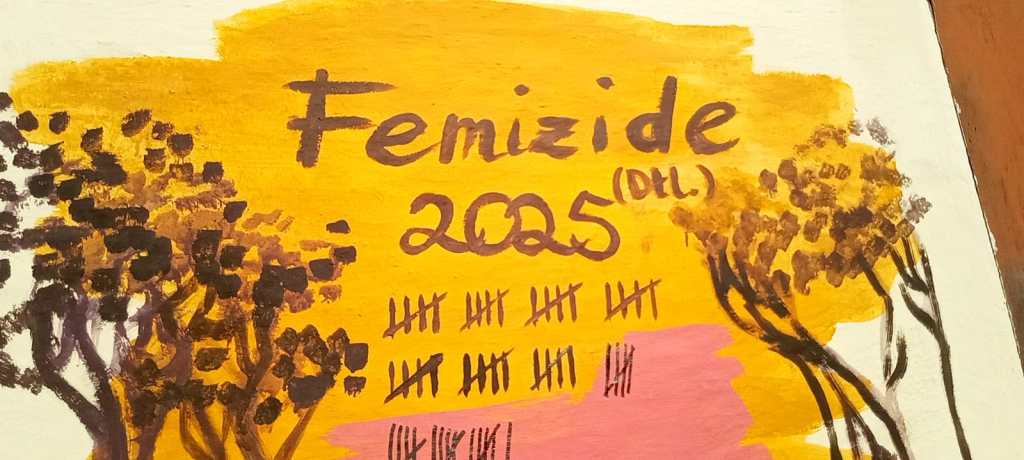 Femizide
2025 (Dtl.)